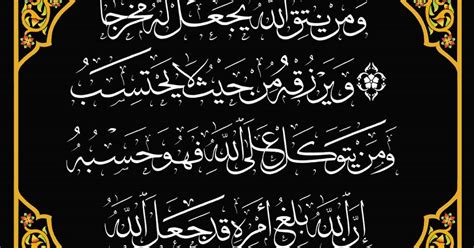 وَمَنْ يَتَّقِ اللَّهَ يَجْعَلْ لَهُ مَخْرَجًا
وَيَرْزُقْهُ مِنْ حَيْثُ لَا يَحْتَسِبُ
وَمَنْ يَتَوَكَّلْ عَلَى اللَّهِ فَهُوَ حَسْبُهُ
إِنَّ اللَّهَ بَالِغُ أَمْرِهِ قَدْ جَعَلَ اللَّهُ